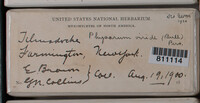 UNITED STATES NATIONAL HERBARIUM.
MYXOMYCETES OF NORTH AMERICA.
Tilmadoche Physarum viride (Bull.) Pers.
Farmington, New York.
E. Brown
G.N. Collins Coll. Aug. 19, 1900.
811114